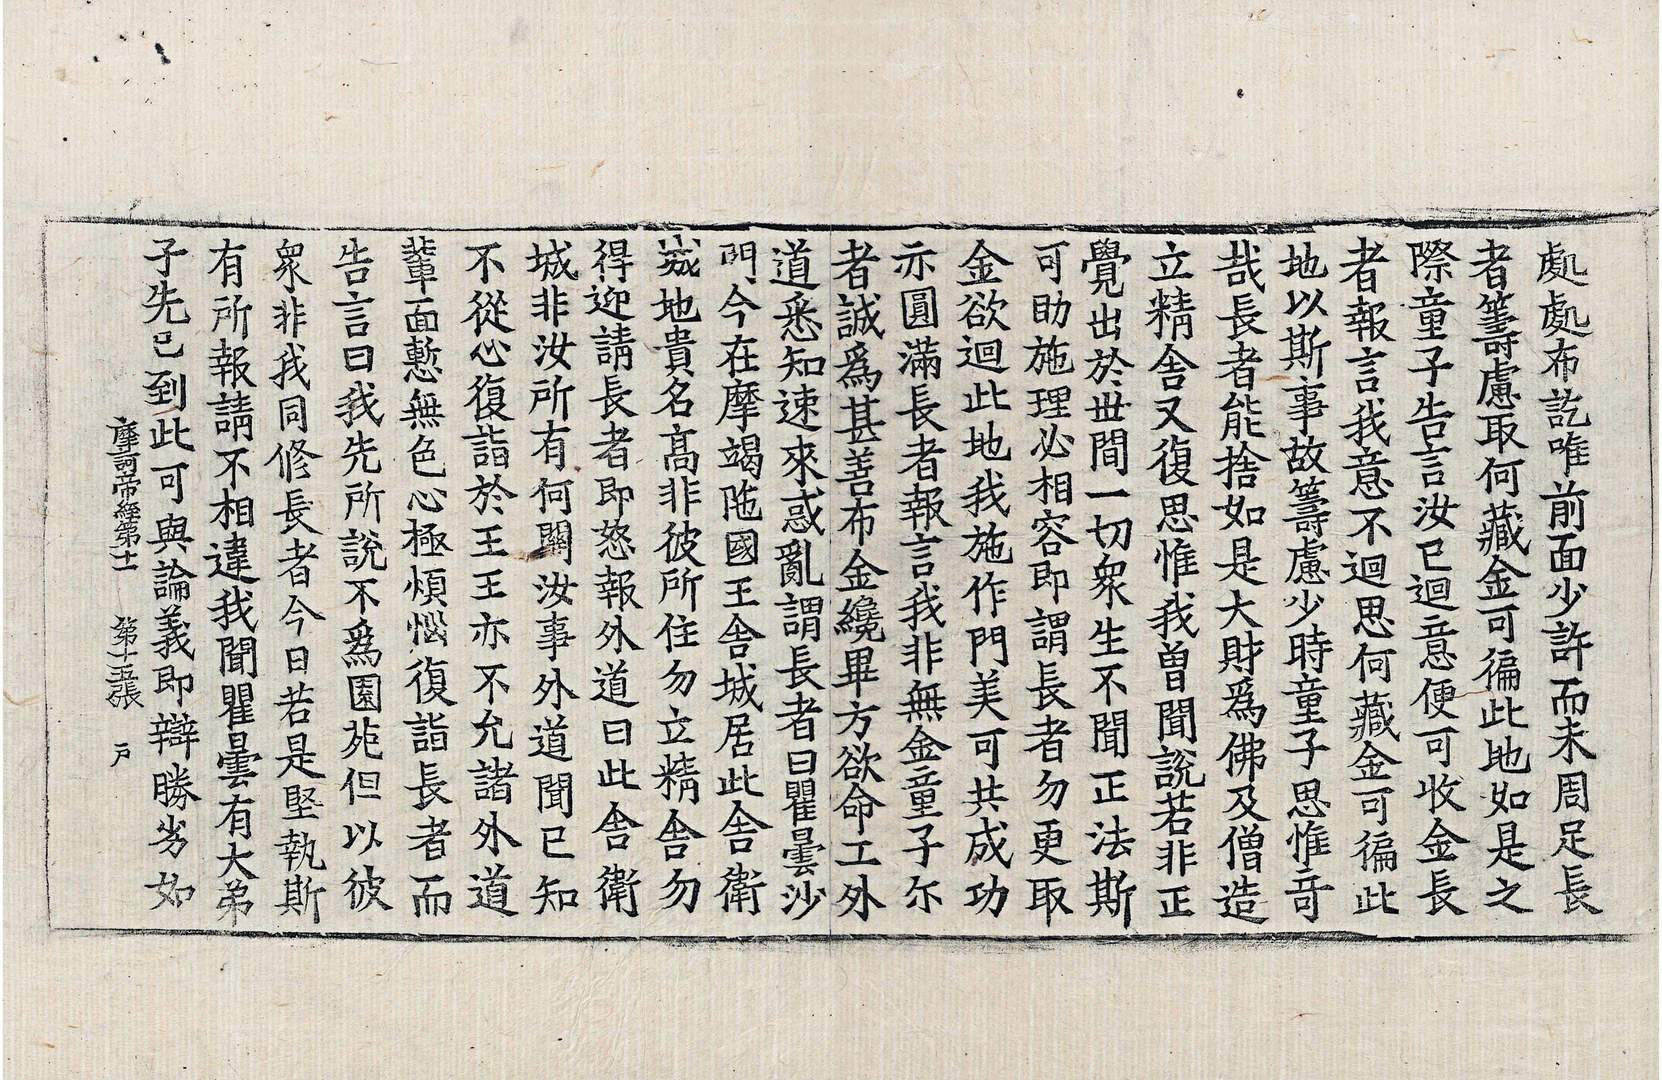 處處布訖唯前面少許而未周足長
者籌慮取何藏金可徧此地如是之
際童子告言汝已迴意便可收金長
者報言我意不迴思何藏金可徧此
地以斯事故籌慮少時童子思惟竒
㢤長者能捨如是大財爲佛及僧造
立精舍又復思惟我曾聞說若非正
覺出於世間一切衆生不聞正法斯
可助施理必相容即謂長者勿更取
金欲迴此地我施作門美可共成功
亦圓滿長者報言我非無金童子尔
者誠爲甚善布金纔畢方欲命工外
道悉知速來惑亂謂長者曰瞿曇沙
門今在摩竭陁國王舍城居此舍衛
城地貴名髙非彼所住勿立精舍勿
得迎請長者即怒報外道曰此舍衛
城非汝所有何關汝事外道聞已知
不從心復詣於王王亦不允諸外道
輩面慙無色心極煩惱復詣長者而
告言曰我先所說不爲園苑但以彼
衆非我同修長者今日若是堅執斯
有所報請不相違我聞瞿曇有大弟
子先已到此可與論義即辯勝劣如
摩訶帝經第十一　第十五張　户